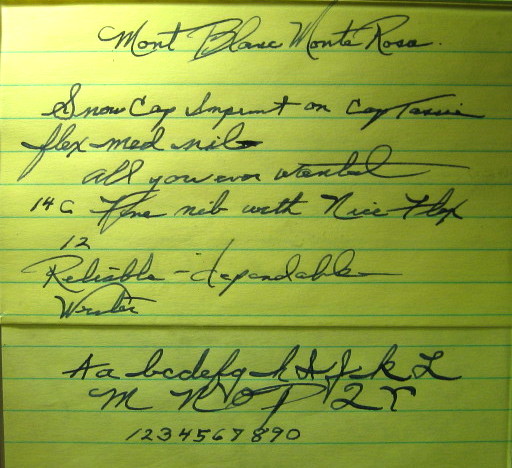 Mont Blanc Monte Rosa.
Snow Cap Imprint on Cap Tassie
flex-med nib
all you ever wanted
14 C Fine nib with Nice Flex
12
Reliable - dependable
Writer
A a b c d e f g h I J k L
M N O P Q r
1 2 3 4 5 6 7 8 9 0